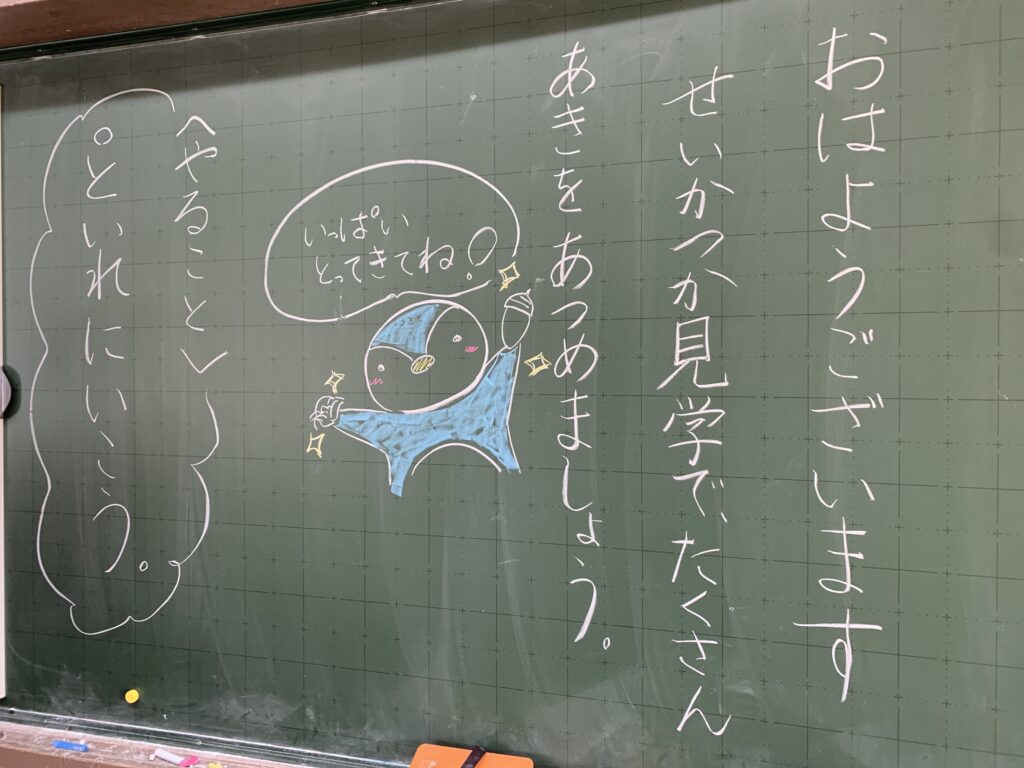 おはようございます
せいかつか見学で、たくさん
あきをあつめましょう。
いっぱい
とってきてね!
〈やること〉
○といれにいこう。